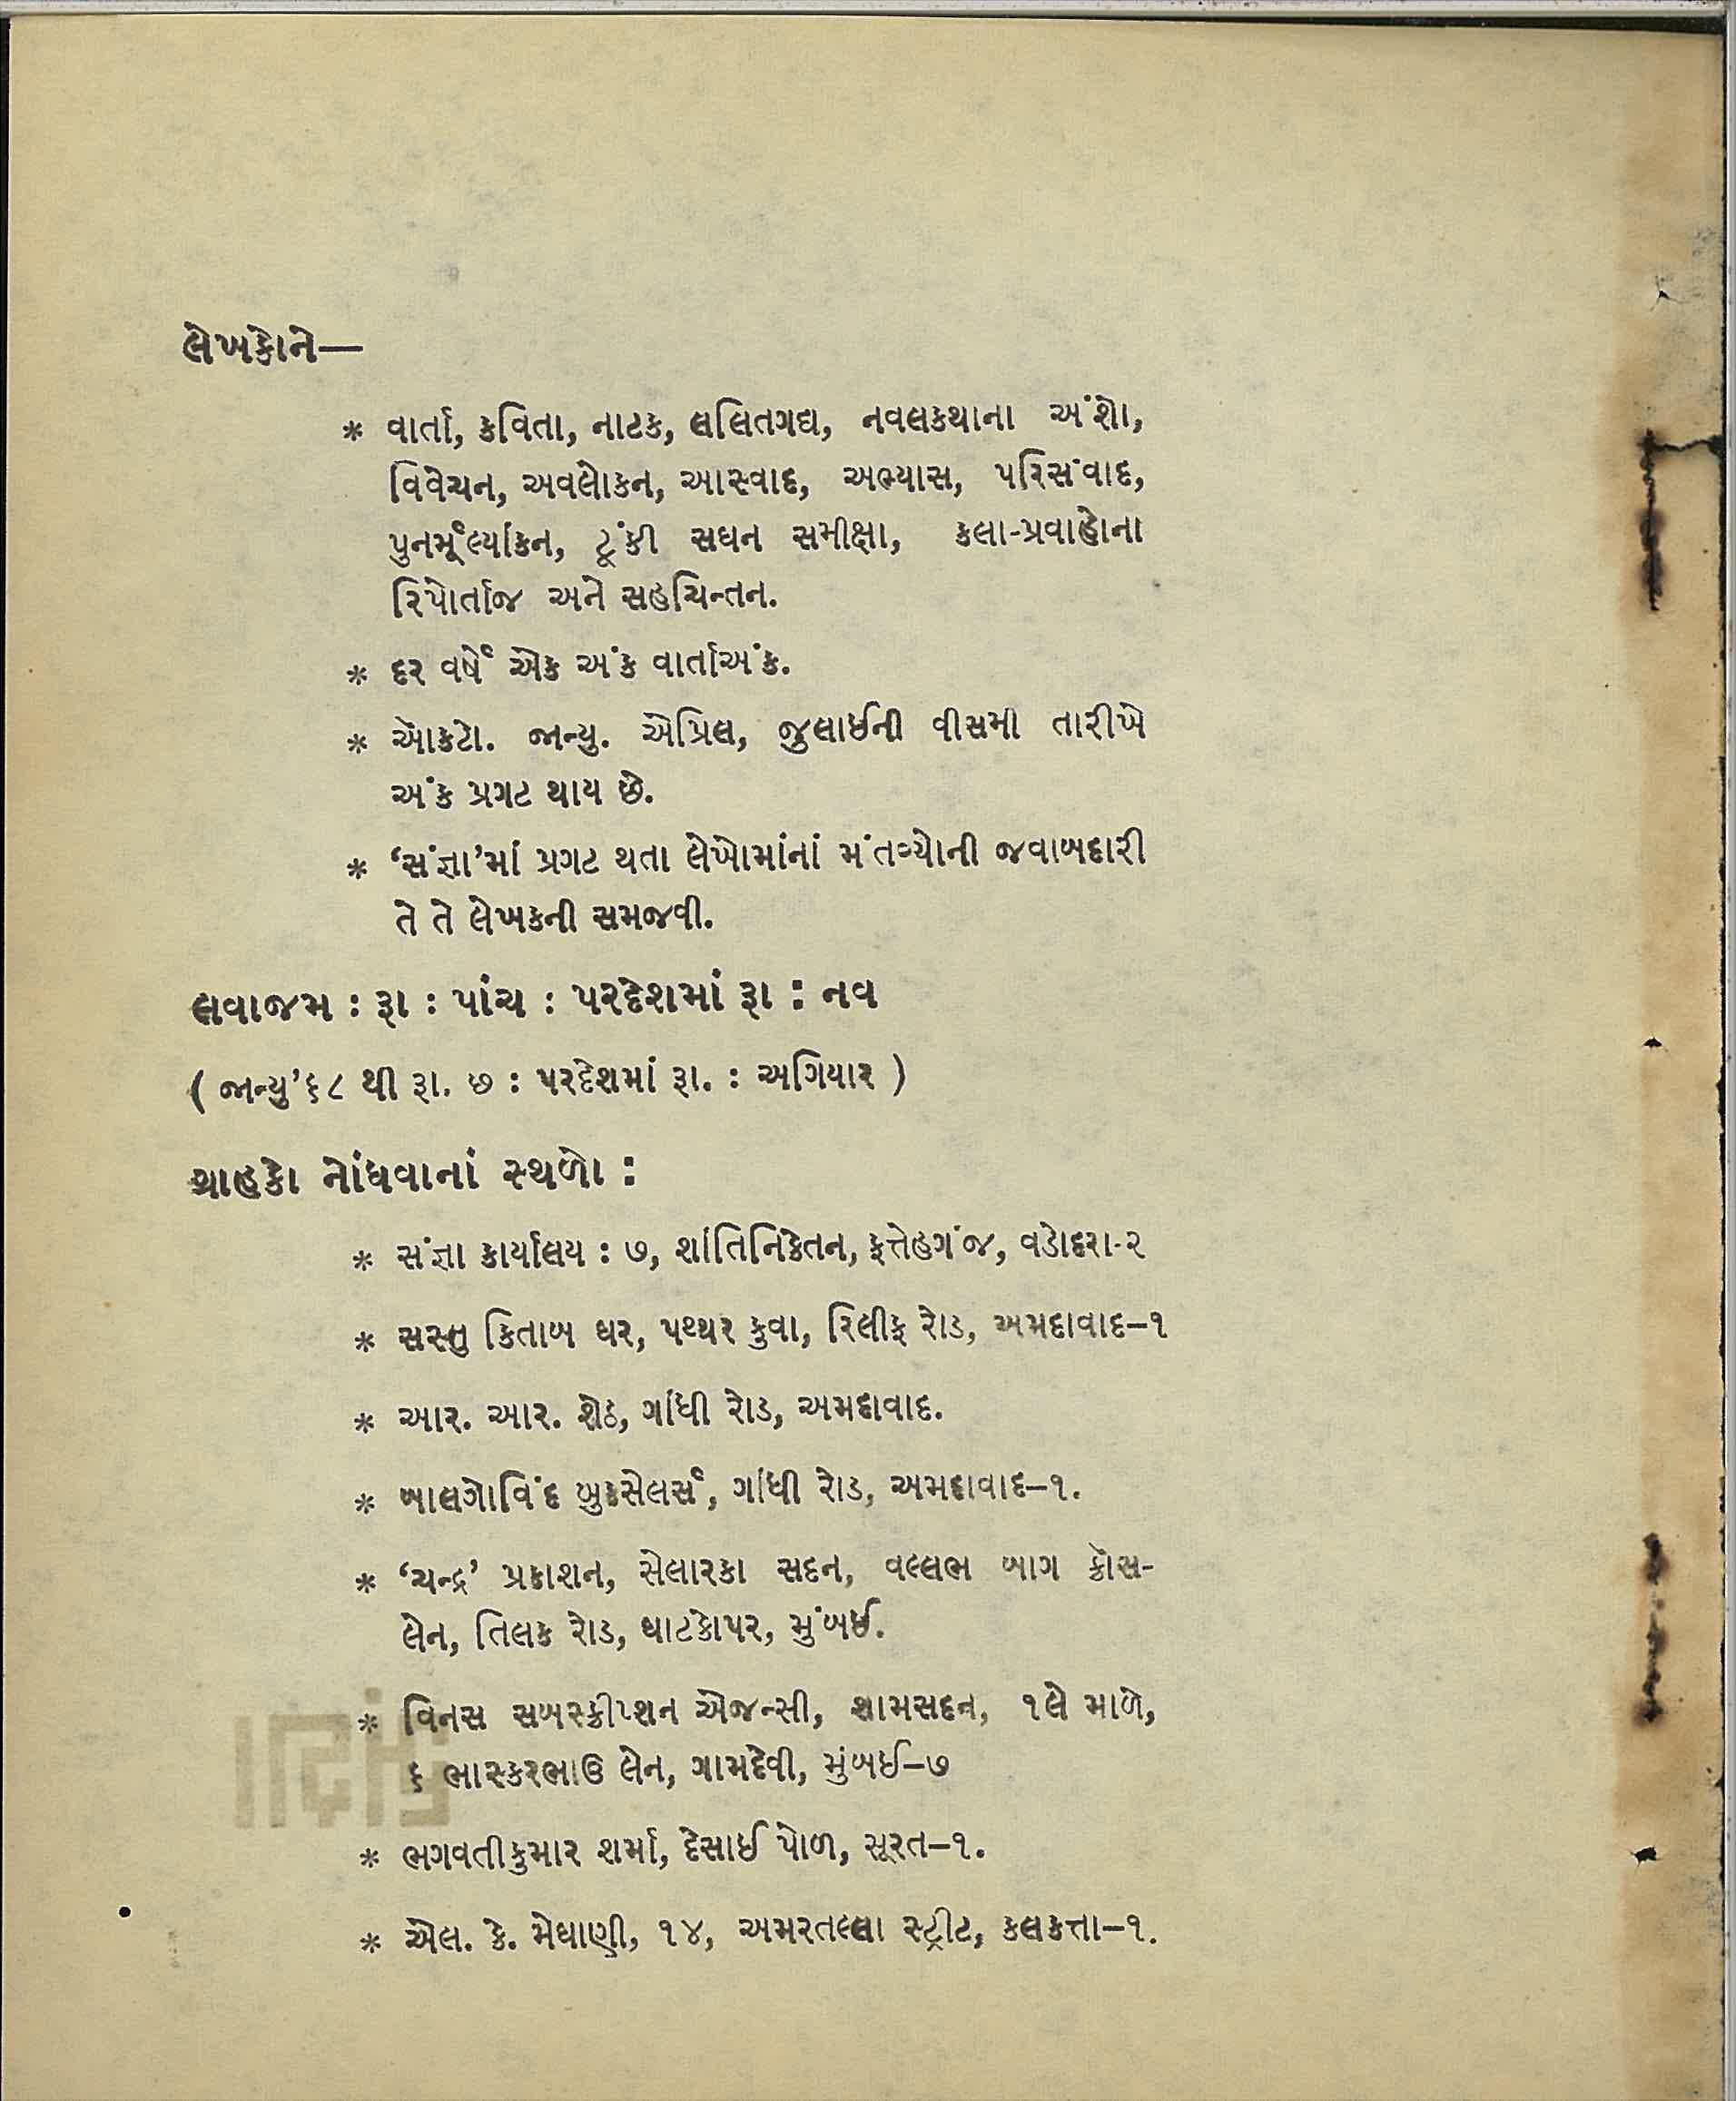 લેખકોને—
* વાર્તા, કવિતા, નાટક, લલિતગદ્ય, નવલકથાના અંશો,
વિવેચન, અવલોકન, આસ્વાદ, અભ્યાસ, પરિસંવાદ,
પુનર્મૂલ્યાંકન, ટૂંકી સઘન સમીક્ષા, કલા-પ્રવાહોના
રિપોર્તાજ અને સહચિન્તન.
* દર વર્ષે એક અંક વાર્તાઅંક.
* ઑકટો. જાન્યુ. એપ્રિલ, જુલાઈની વીસમી તારીખે
અંક પ્રગટ થાય છે.
* ‘સંજ્ઞા’માં પ્રગટ થતા લેખોમાંનાં મંતવ્યોની જવાબદારી
તે તે લેખકની સમજવી.
લવાજમ : રૂા : પાંચ : પરદેશમાં રૂા : નવ
( જાન્યુ’૬૮ થી રૂા. છ : પરદેશમાં રૂા. : અગિયાર )
ગ્રાહકો નોંધવાનાં સ્થળો :
* સંજ્ઞા કાર્યાલય : ૭, શાંતિનિકેતન, ફત્તેહગંજ, વડોદરા-૨
* સસ્તુ કિતાબ ઘર, પથ્થર કુવા, રિલીફ રોડ, અમદાવાદ–૧
* આર. આર. શેઠ, ગાંધી રોડ, અમદાવાદ.
* બાલગોવિંદ બુકસેલર્સ, ગાંધી રોડ, અમદાવાદ–૧.
* ‘ચન્દ્ર’ પ્રકાશન, સેલારકા સદન, વલ્લભ બાગ ક્રૉસ-
લેન, તિલક રોડ, ઘાટકોપર, મુંબઈ.
* વિનસ સબસ્ક્રીપ્શન એજન્સી, શામસદન, ૧લે માળે,
૬ ભાસ્કરભાઉ લેન, ગામદેવી, મુંબઈ–૭
* ભગવતીકુમાર શર્મા, દેસાઈ પોળ, સૂરત–૧.
* એલ. કે. મેઘાણી, ૧૪, અમરતલ્લા સ્ટ્રીટ, કલકત્તા–૧.